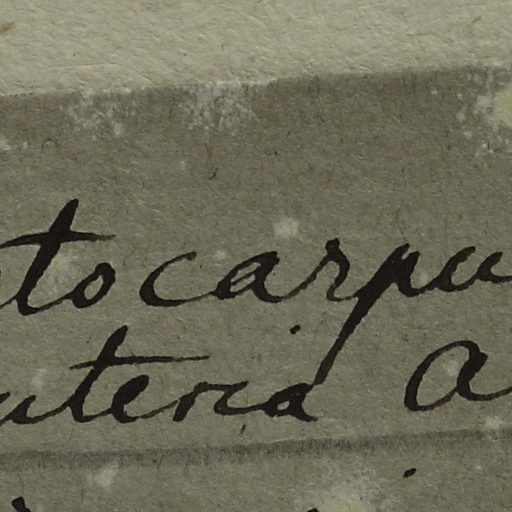 tocarpu
uteria A